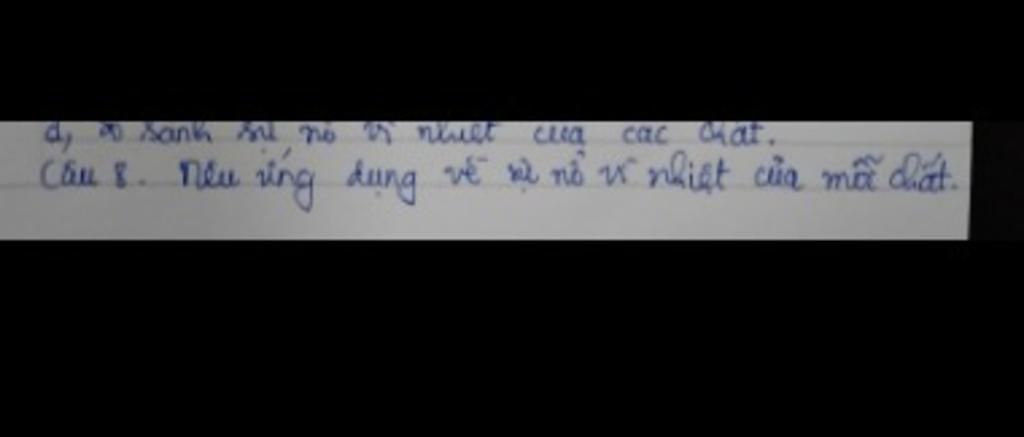 d, so sánh sự nở vì nhiệt của các chất.
Câu 8. Nêu ứng dụng về sự nở vì nhiệt của mỗi chất.